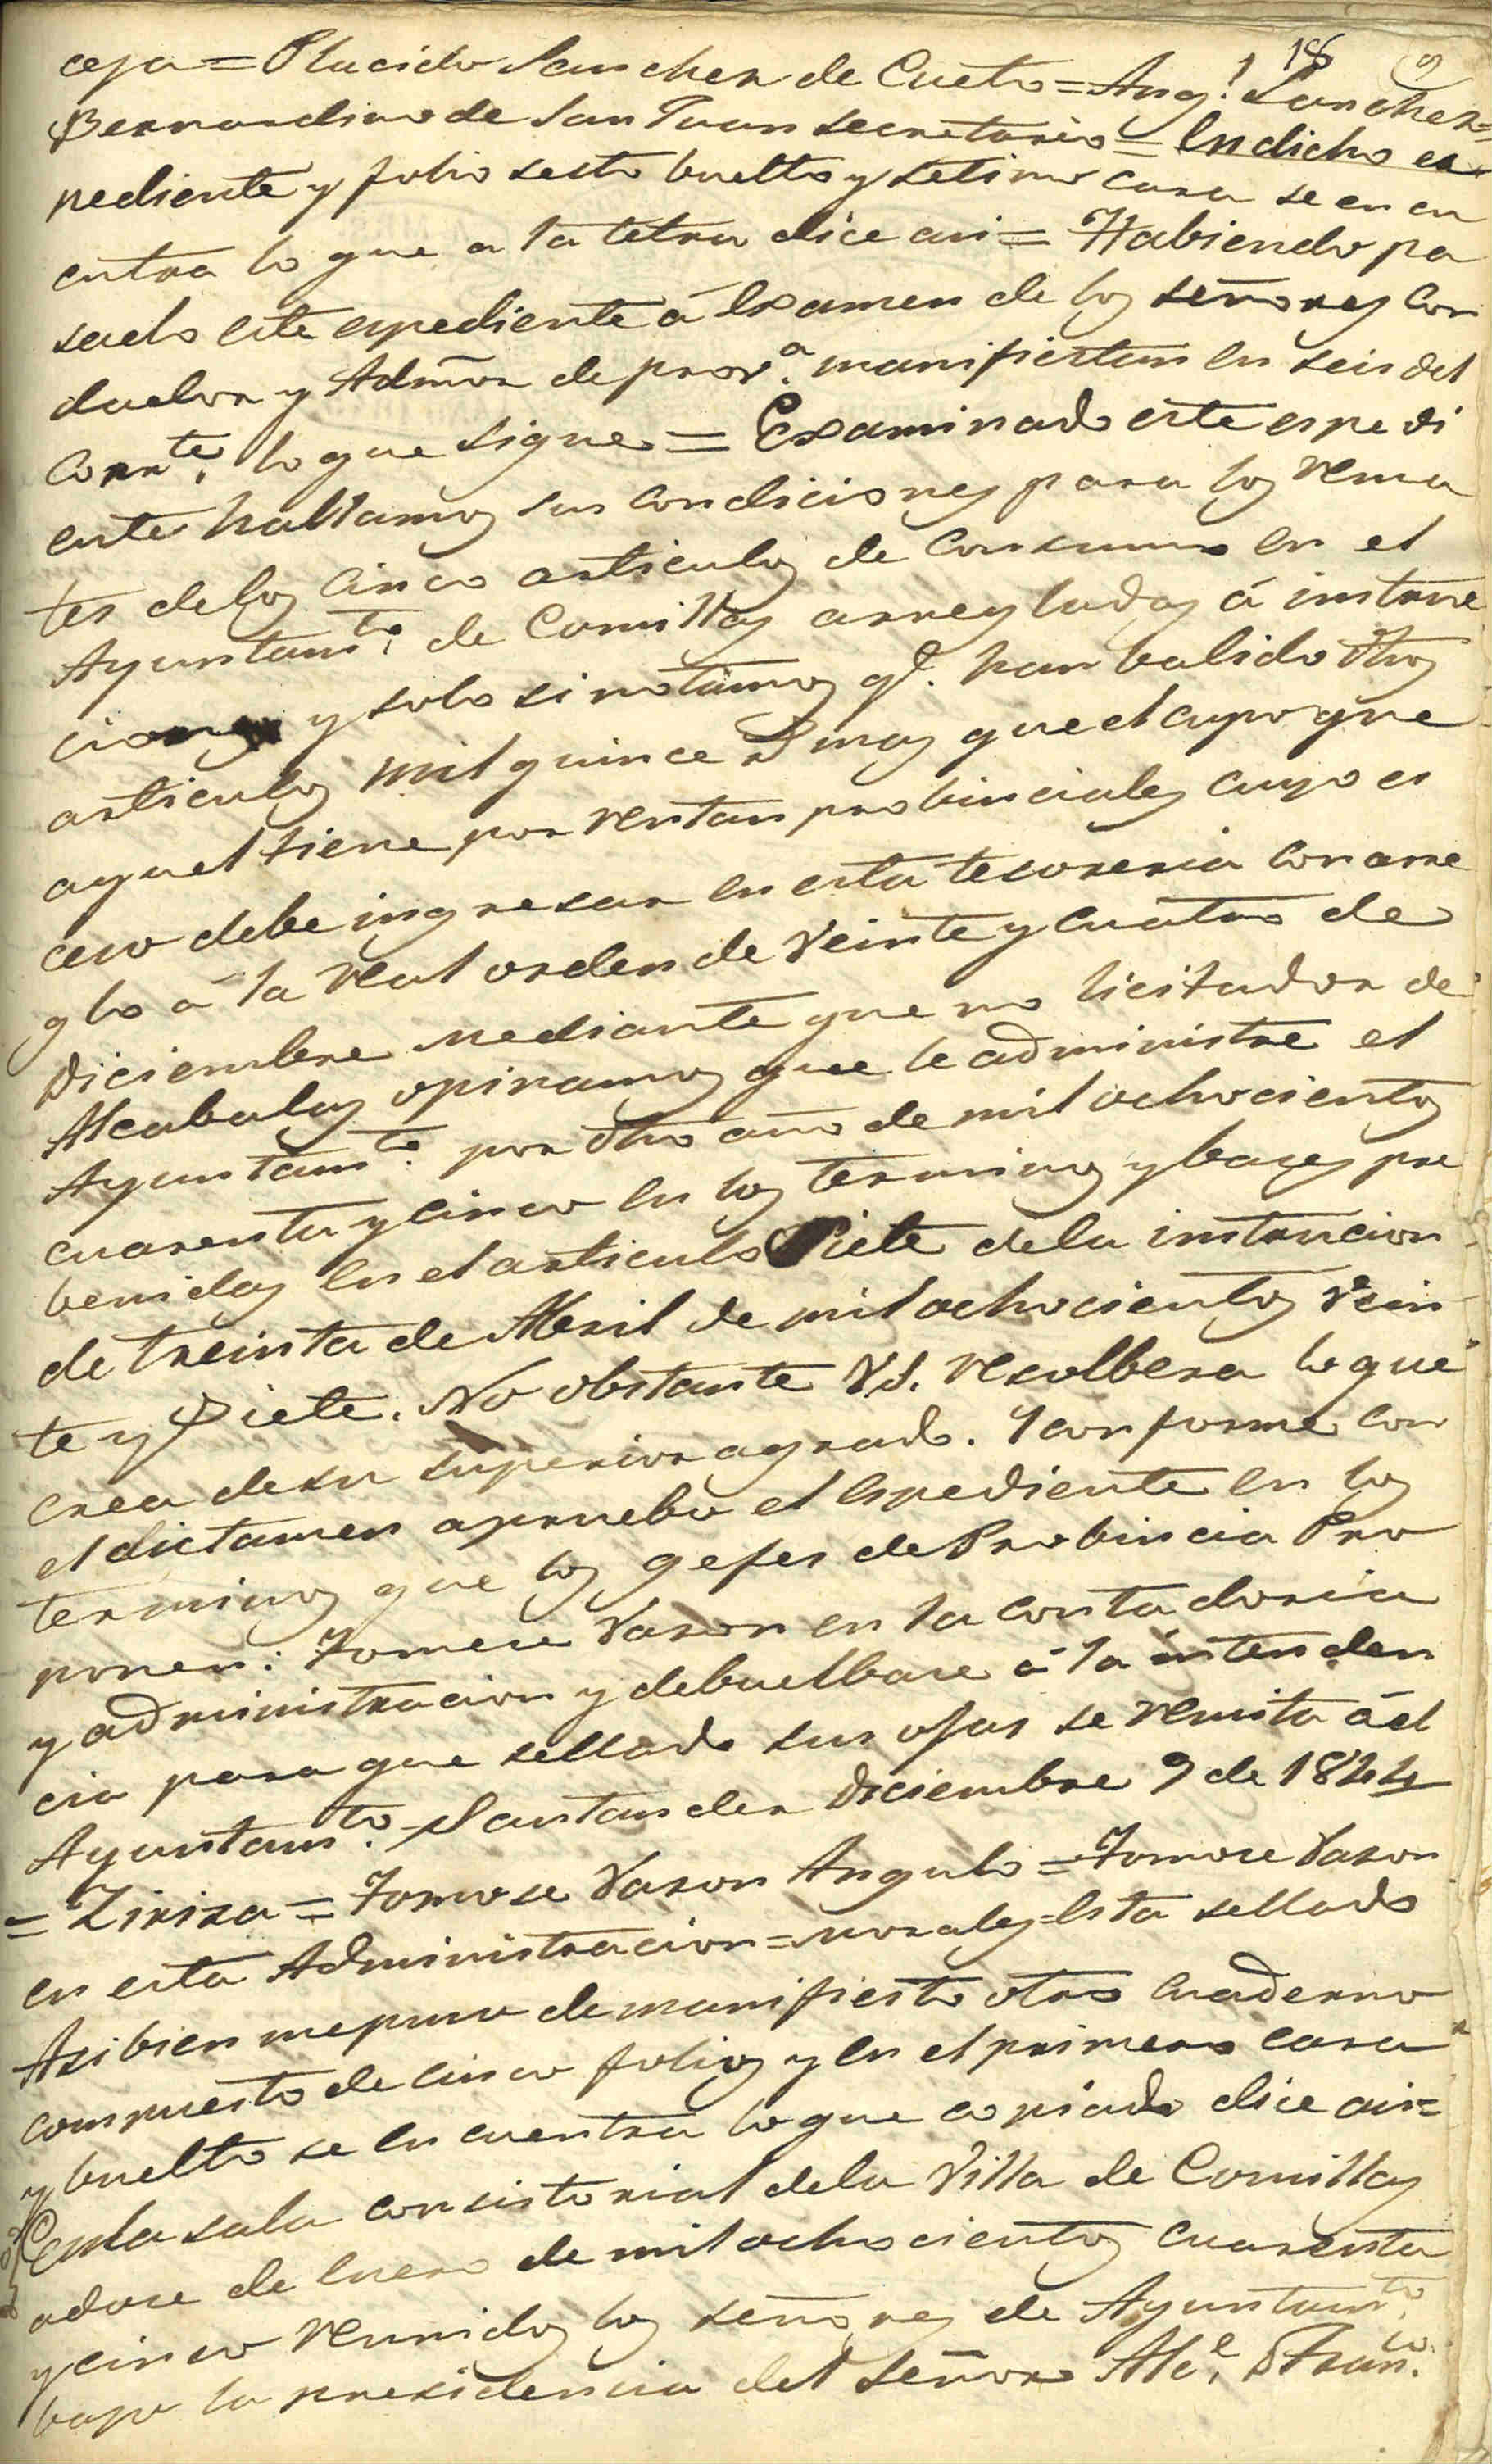 18 9
ceja = Placido Sanchez de Cueto = Ang.l Sanchez =
Bernardino de San Juan secretario = En dicho es
pediente y folio sesto buelto y setimo cara se encu
entra lo que a la letra dice asi = Habiendo pa
sado este espediente á Examen de los señores Con
tador y Admõr de prov.a manifiestan en seis del
Corr.te lo que sigue = Examinado este espedi
ente hallamos sus condiciones para los rema
tes de los cinco articulos de Consumo en el
Ayuntam.to de Comillas arreglados á instruc
ciones y solo si notamos q.e han balido dhos
articulos mil quince rs mas que el cupo que
aquel tiene por rentas probinciales cuyo es
ceso debe ingresar en esta tesoreria con arre
glo á la real orden de Veinte y cuatro de
Diciembre mediante que no licitador de
Alcabalas opinamos que le administre el
Ayuntam.to por dho año de mil ochocientos
cuarenta y cinco en los terminos y bases pre
benidas en el articulo Siete dela instrucion
de treinta de Abril de mil ochocientos Vein
te y Siete. No obstante V.S. resolbera lo que
crea desu superior agrado. Y conforme con
el dictamen apruebo el Espediente en los
terminos que los gefes de Probincia Pro
ponen: Tomese Razon en la contadoria
y administracion y debuelbase á la intenden
cia para que sellado sus ojas se remita ál
Ayuntam.to Santander Diciembre 9 de 1844
= Ziriza = Tomose Razon Angulo = Tomose Razon
en esta Administracion = Morales = Esta sellado
Asi bien me puso de manifiesto otro Cuaderno
compuesto de cinco folios y en el primero cara
y buelto se encuentra lo que copiado dice asi =
En la sala consistorial dela Villa de Comillas
a doce de Enero de mil ochocientos cuarenta
y cinco reunidos los señores de Ayuntam.to
bajo la presidencia del señor Alc.e D Fran.co